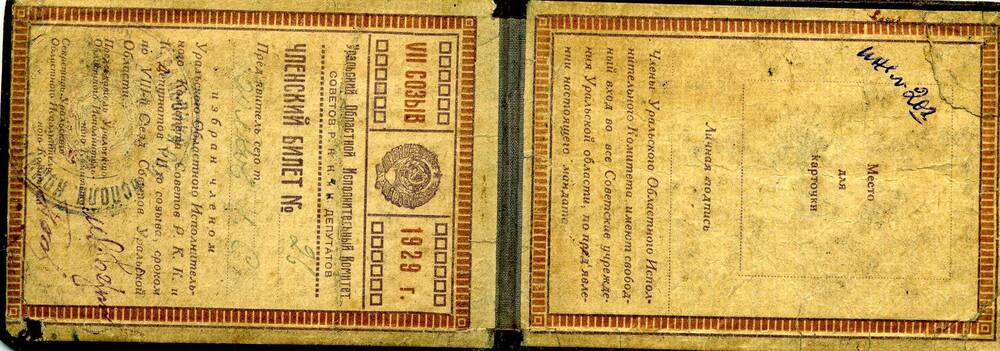 VII СОЗЫВ
1929 г.
Уральский Областной Исполнительный Комитет
СОВЕТОВ Р. К. и К. ДЕПУТАТОВ
ЧЛЕНСКИЙ БИЛЕТ №
Пред'явитель сего т.
избран членом
Уральского Областного Исполнитель-
ного Комитета Советов Р. К. К. и
К. Депутатов VII го созыва, сроком
по VIII-й Съезд Советов Уральской
Области.
Председатель Уральского
Областного Исполнитель-
ного Комитета
Секретарь Уральского
Областного Исполнитель-
ного Комитета
инв. № 202
Место
для
карточки
Личная подпись
Члены Уральского Областного Испол-
нительного Комитета, имеют свобод-
ный вход во все Советские учрежде-
ния Уральской области, по пред'явле-
нии настоящего мандата.